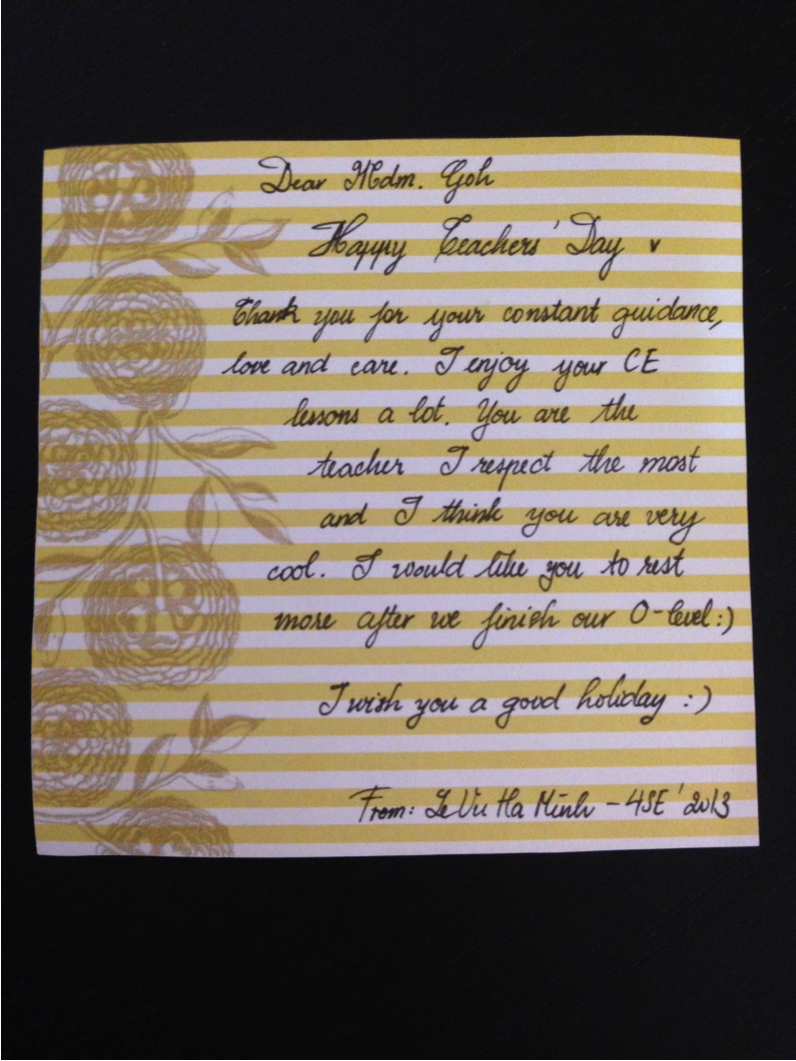 Dear Mdm. Goh
Happy Teachers' Day v
Thank you for your constant guidance,
love and care. I enjoy your CE
lessons a lot. You are the
teacher I respect the most
and I think you are very
cool. I would like you to rest
more after we finish our O-level:)
I wish you a good holiday :)
From: Le Vu Ha Minh - 4SE '2013